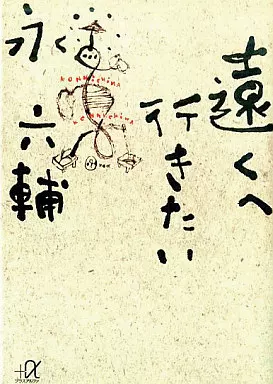 遠くへ
行きたい
永
六輔
KONNICHIWA
KONNICHIWA
+α
プラスアルファ